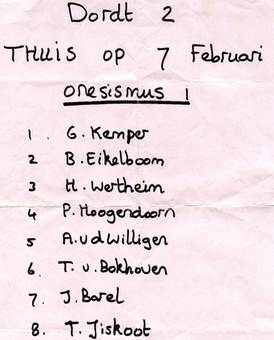 Dordt 2
THuis op 7 Februari
onesismus 1
1. G. Kemper
2 B. Eikelboom
3 H. Wertheim
4 P. Hoogendoorn
5 A.vd Willigen
6. T. v. Bokhoven
7. J. Barel
8. T. Jiskoot